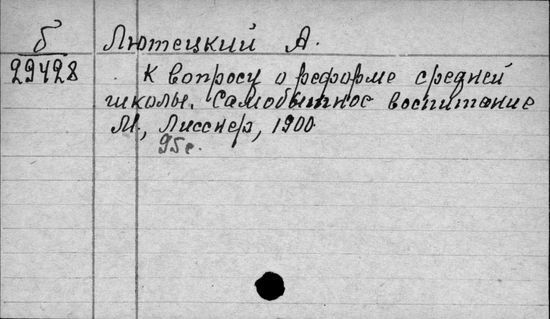 б Лютецкий А.
29428 К вопросу о реформе средней
школы. Самобытное воспитание
М., Лисснер, 1900
95 с.